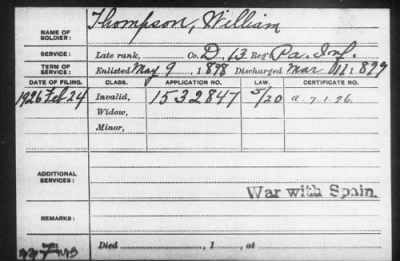 NAME OF SOLDIER: Thompson, William
SERVICE: Late rank, Co. D, 13 Reg't Pa. Inf.
TERM OF SERVICE: Enlisted May 9, 1898 Discharged Mar 11, 1899
DATE OF FILING. CLASS. APPLICATION NO. LAW. CERTIFICATE NO.
1926 Feb. 24 Invalid, 1532847 5/20 a. 7. 1. 26.
Widow,
Minor,
ADDITIONAL SERVICES:
War with Spain.
REMARKS:
Died , 1 , at